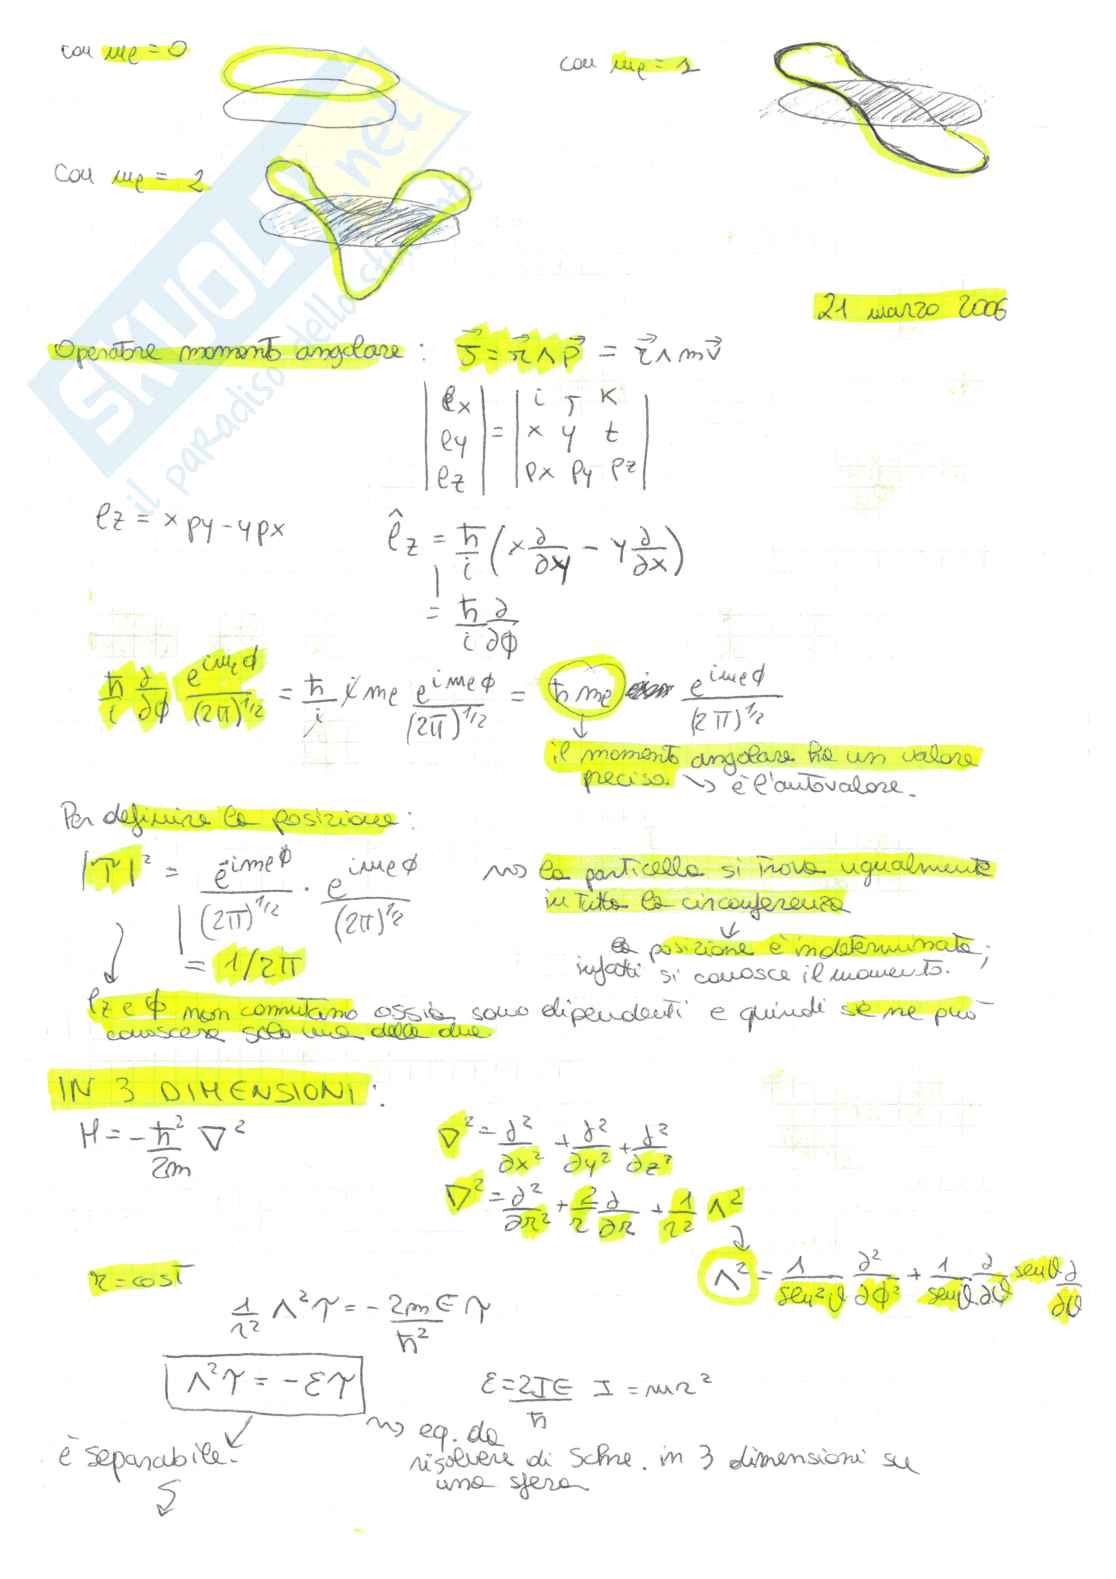 con mℓ = 0
con mℓ = 1
Con mℓ = 2
SKUOLA.net
il paradiso dello studente
21 marzo 2006
Operatore momento angolare : J⃗ = r⃗ ∧ p⃗ = r⃗ ∧ m v⃗
| ℓx | = | i j k |
| ℓy | | x y z |
| ℓz | | px py pz |
ℓz = x py - y px
ℓ̂z = ħ/i (x ∂/∂y - y ∂/∂x)
= ħ/i ∂/∂ϕ
ħ/i ∂/∂ϕ e^{imℓϕ}/(2π)^{1/2} = ħ/i i mℓ e^{imℓϕ}/(2π)^{1/2} = ħ mℓ e^{imℓϕ}/(2π)^{1/2}
il momento angolare ha un valore
preciso → è l'autovalore.
Per definire la posizione :
|Ψ|² = e^{-imℓϕ}/(2π)^{1/2} · e^{imℓϕ}/(2π)^{1/2} ⇝ la particella si trova ugualmente
in tutta la circonferenza
= 1/2π
la posizione è indeterminata;
infatti si conosce il momento.
ℓz e ϕ non commutano ossia sono dipendenti e quindi se ne può
conoscere solo una delle due
IN 3 DIMENSIONI :
H = - ħ²/2m ∇²
∇² = ∂²/∂x² + ∂²/∂y² + ∂²/∂z²
∇² = ∂²/∂r² + 2/r ∂/∂r + 1/r² Λ²
Λ² = 1/sen²θ ∂²/∂ϕ² + 1/senθ ∂/∂θ senθ ∂/∂θ
r = cost
1/r² Λ²Ψ = - 2mE/ħ² Ψ
Λ²Ψ = - εΨ
ε = 2IE/ħ I = mr²
è separabile.
⇝ eq. da
risolvere di Schre. in 3 dimensioni su
una sfera